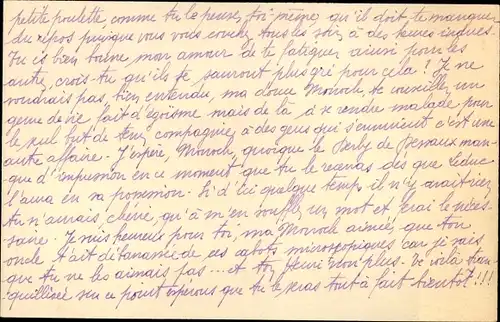 petite poulette, comme tu le penses toi-même, qu'il doit te manquer
du repos puisque vous vous couchez tous les soirs à des heures indues.
Tu es bien bonne mon amour de te fatiguer ainsi pour les
autres, crois-tu qu'ils t'en sauront plus gré pour cela? Je ne
voudrais pas, bien entendu, ma douce Monoch, te conseiller un
genre de vie fait d'égoïsme mais de là à se rendre malade pour
le seul but de tenir compagnie à des gens qui s'ennuient c'est une
autre affaire. J'espère, Monoch, quoique le Derby de man-
que d'impression en ce moment que tu le recevras dès que Leduc
l'aura en sa possession. Si d'ici quelque temps il n'y avait rien
tu n'aurais, chérie, qu'à m'en souffler un mot et ferai le néces-
saire. Je suis heureux pour toi, ma Monoch aimée, que ton
oncle t'ait débarrassée de ces cabots microscopiques car je sais
que tu ne les aimais pas... et ton Henri non plus. Te voilà tran-
quillisée sur ce point espérons que tu le seras tout à fait bientôt!!!